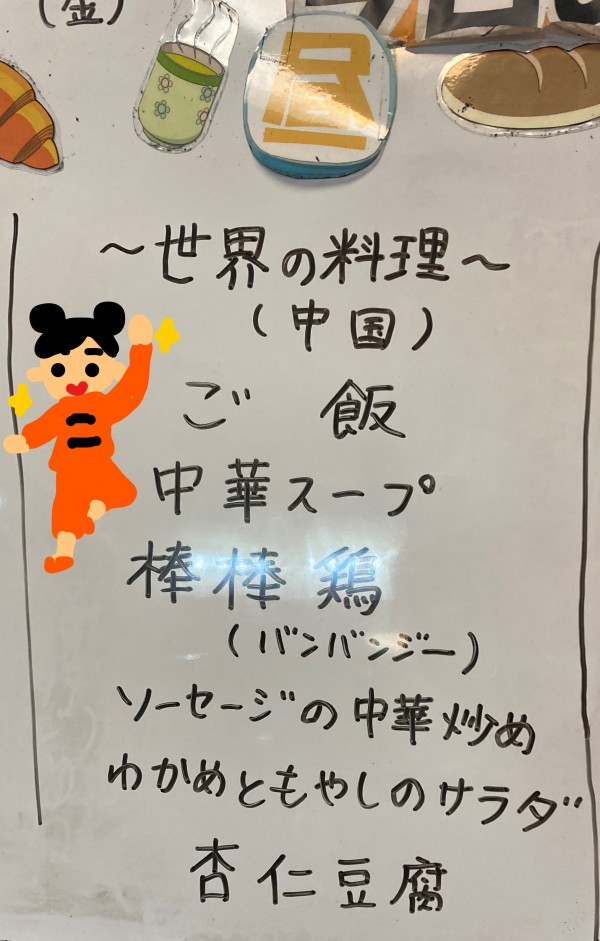 (金)
昼
～世界の料理～
(中国)
ご飯
中華スープ
棒棒鶏
(バンバンジー)
ソーセージの中華炒め
わかめともやしのサラダ
杏仁豆腐